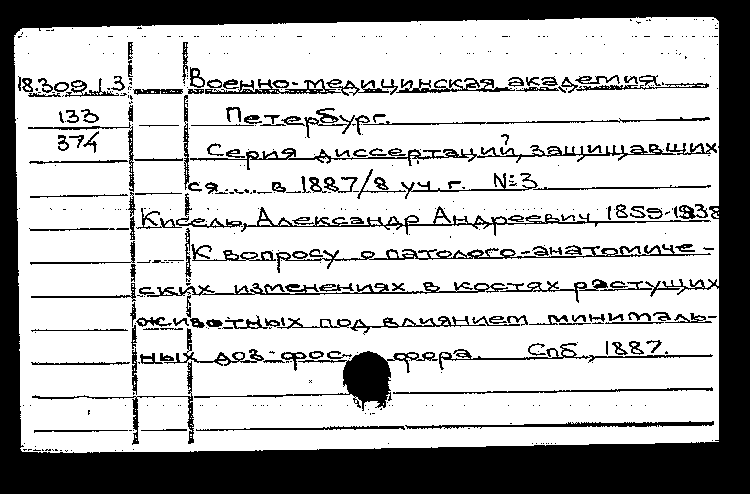 18.309.1.3 Военно-медицинская академия.
133 Петербург.
374 Серия диссертаций, защищавших-
ся.... в 1887/8 уч. г. №3
Кисель, Александр Андреевич, 1859-1938
К вопросу о патолого-анатомиче-
ских изменениях в костях растущих
животных под влиянием минималь-
ных доз фос-фора. Спб., 1887.